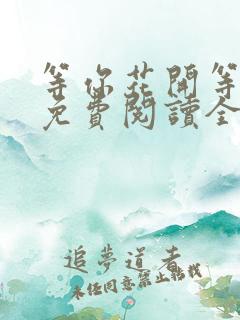 等你花開等
免費閱讀全
追夢道者
未经同意禁止转载